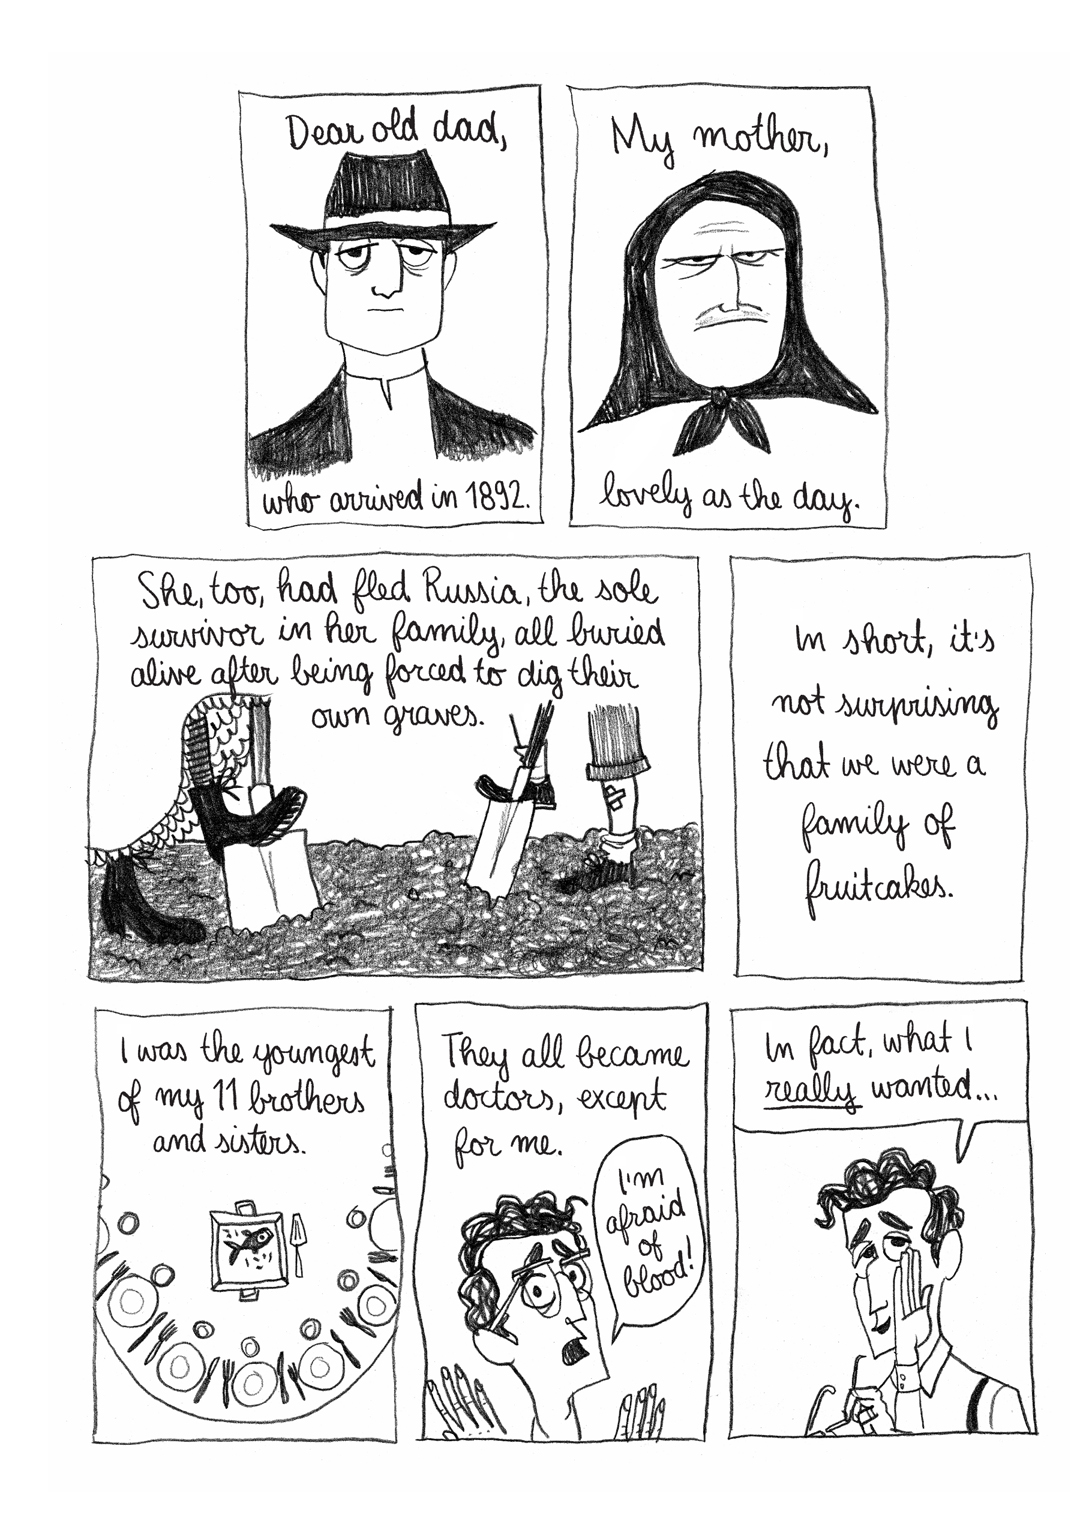 Dear old dad,
who arrived in 1892.
My mother,
lovely as the day.
She, too, had fled Russia, the sole
survivor in her family, all buried
alive after being forced to dig their
own graves.
In short, it's
not surprising
that we were a
family of
fruitcakes.
I was the youngest
of my 11 brothers
and sisters.
They all became
doctors, except
for me.
I'm
afraid
of
blood!
In fact, what I
really wanted...